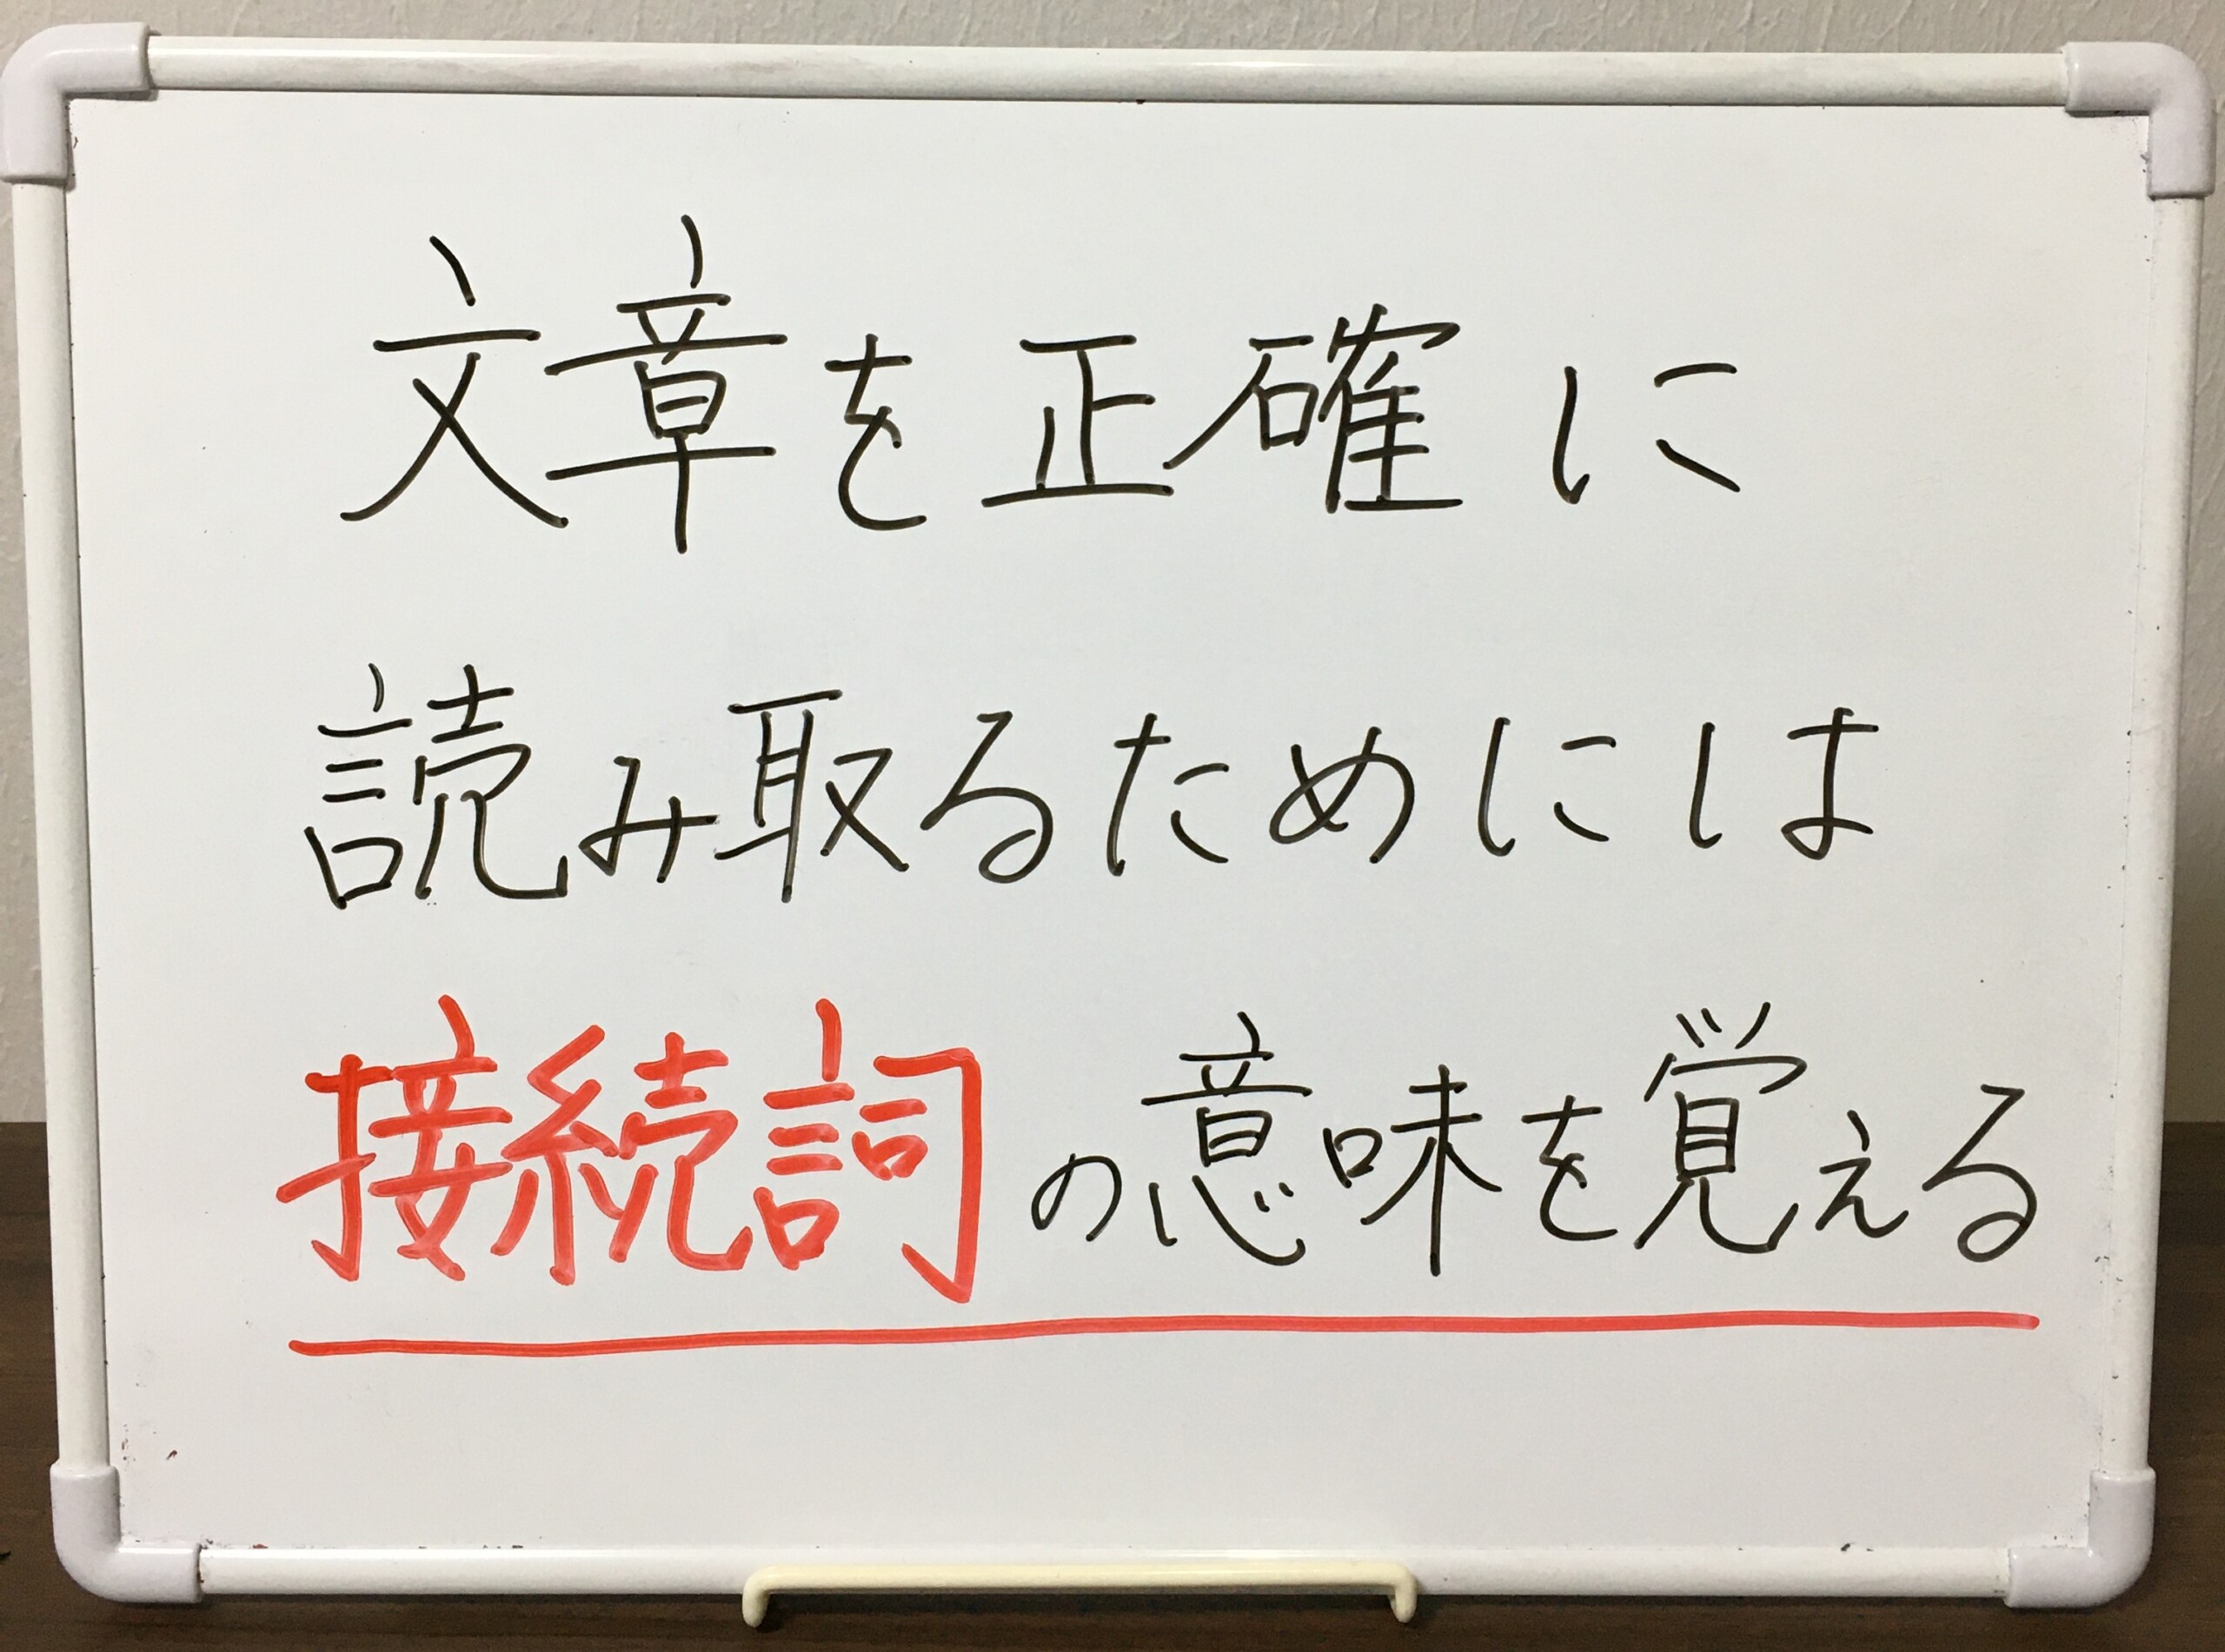 文章を正確に
読み取るためには
接続詞の意味を覚える